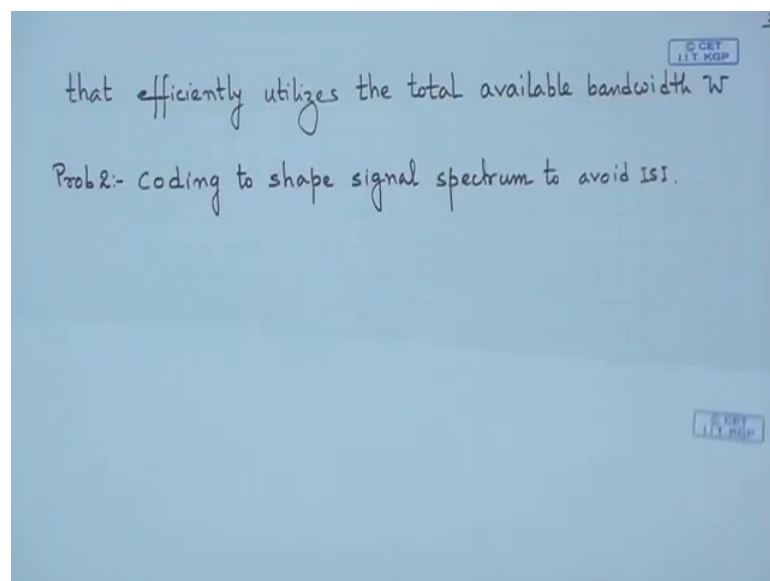 © CET
I.I.T. KGP
that efficiently utilizes the total available bandwidth W
Prob 2:- Coding to shape signal spectrum to avoid ISI.
© CET
I.I.T. KGP